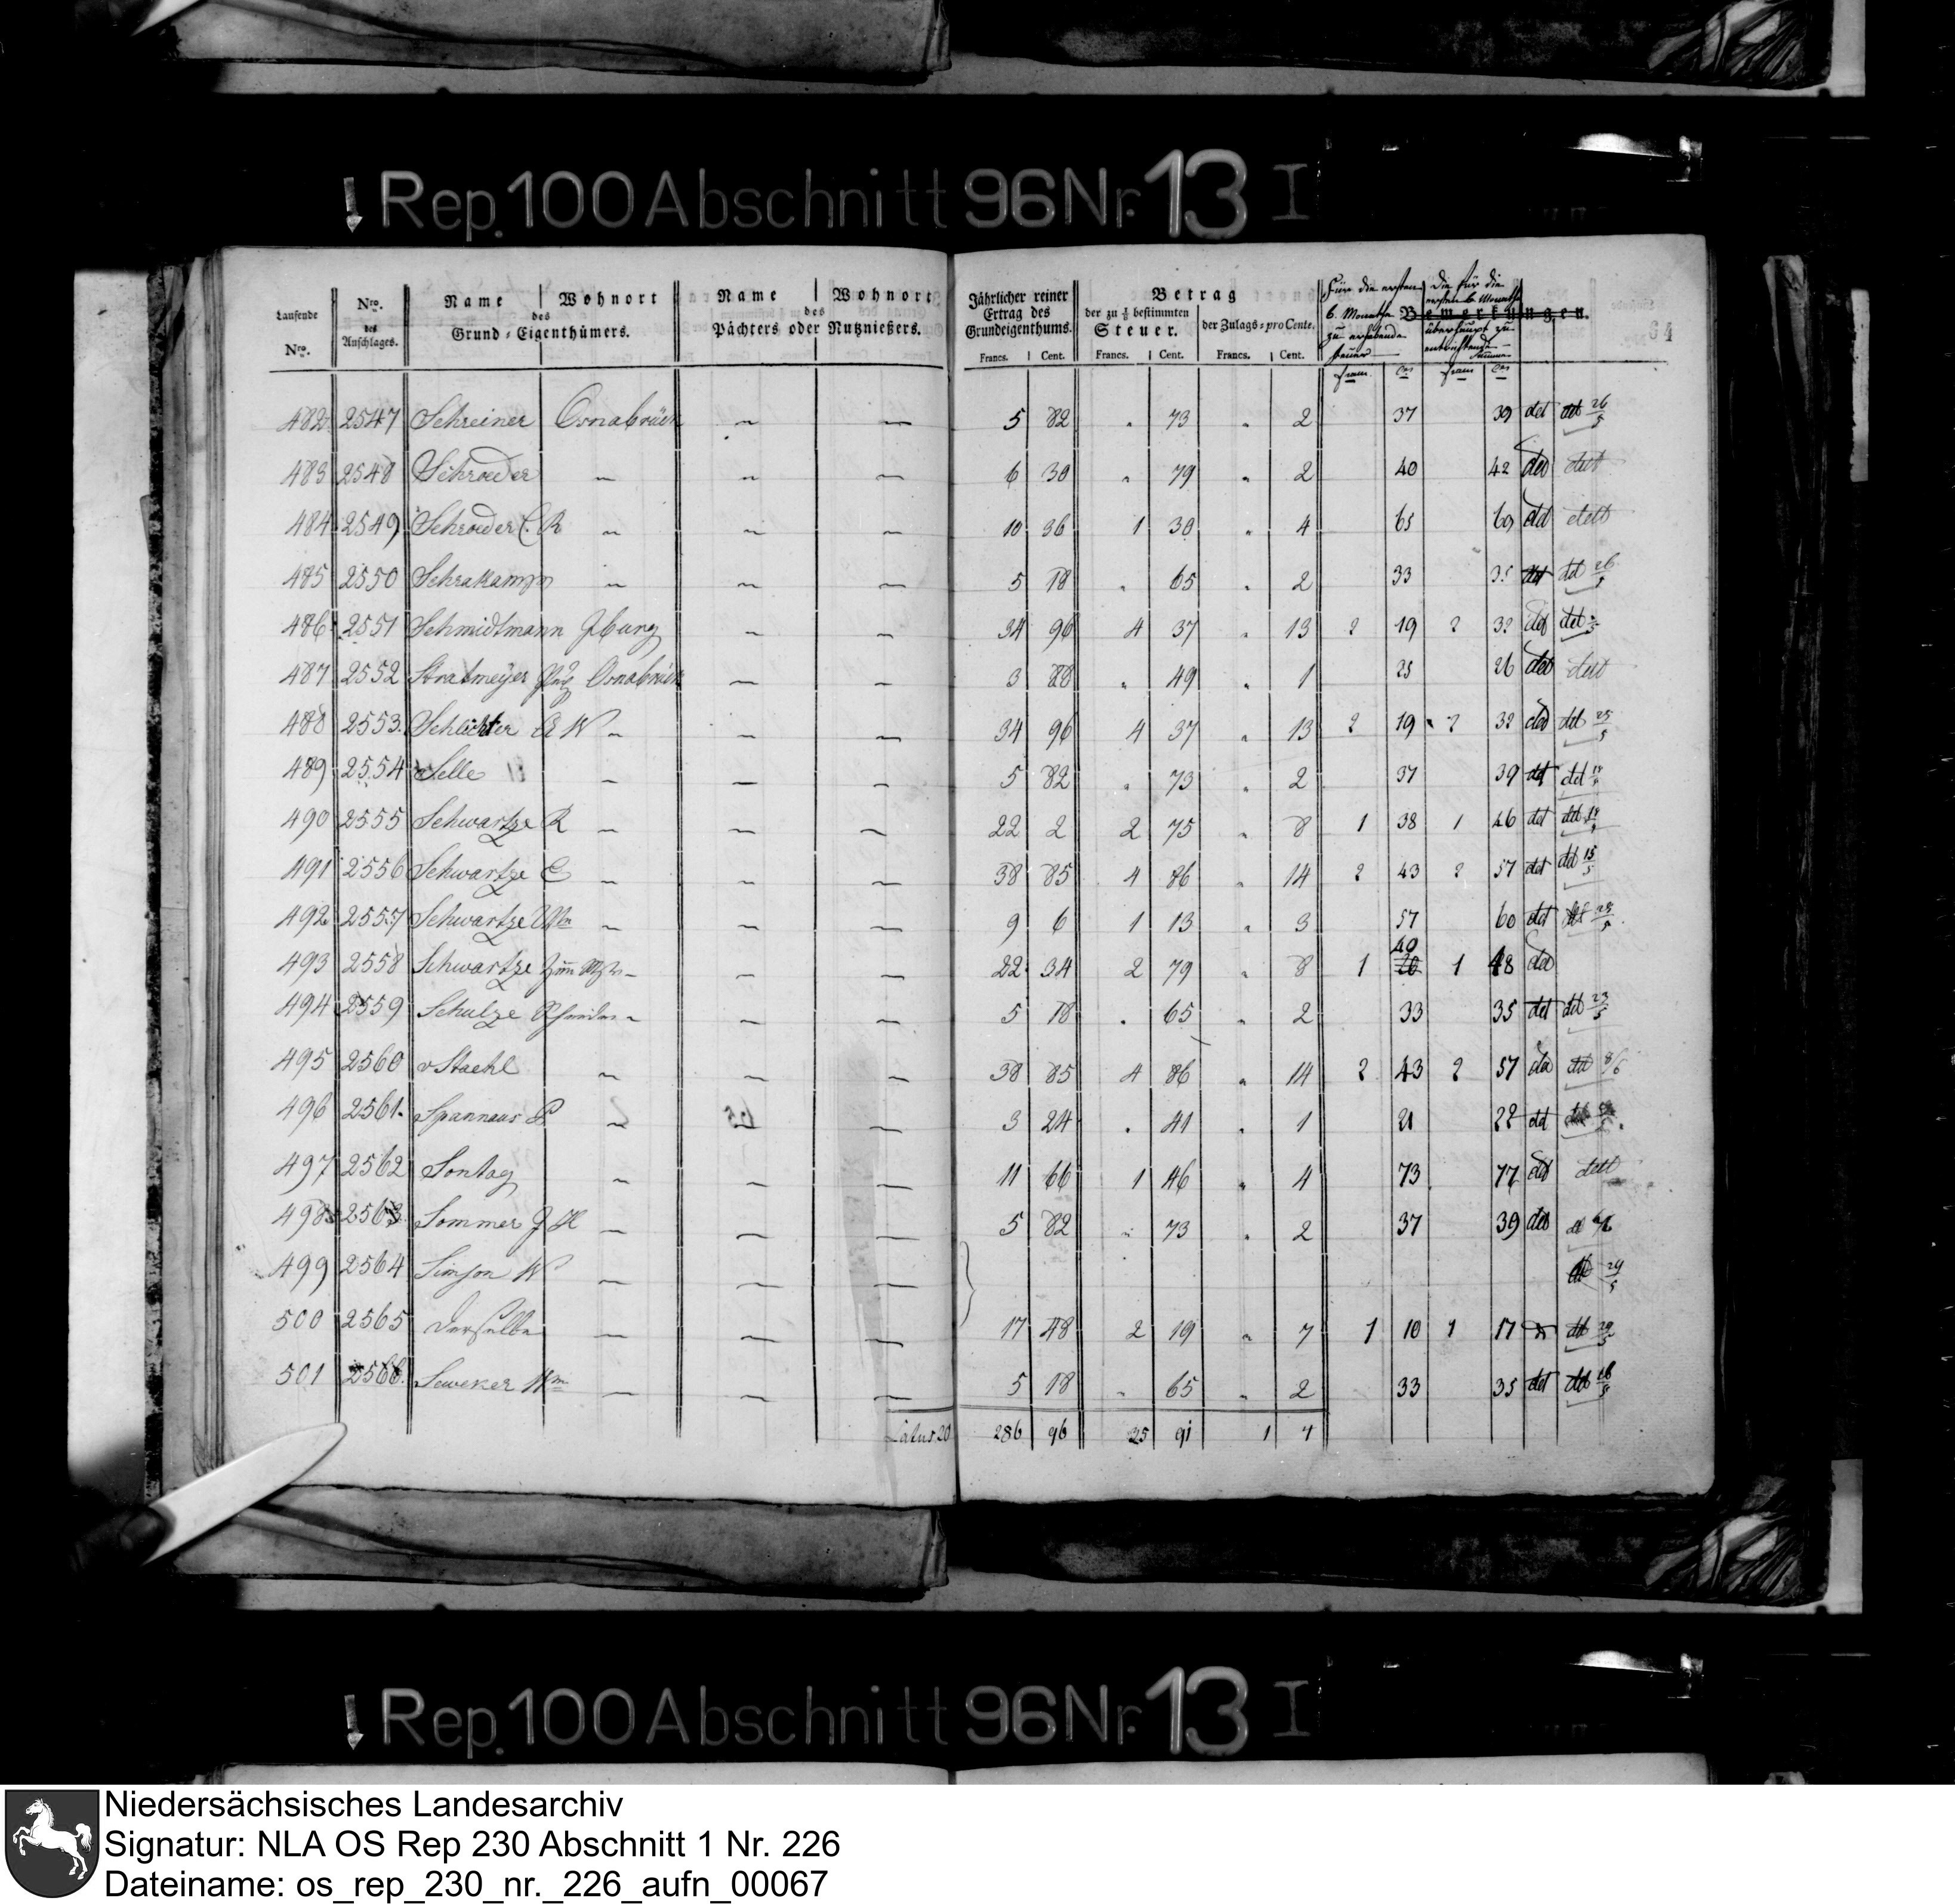 Rep. 100 Abschnitt 96 Nr. 13 I
Laufende Nro.
Nro. des Anschlages.
Name | Wohnort des Grund-Eigenthümers.
Name | Wohnort des Pächters oder Nutznießers.
Jährlicher reiner Ertrag des Grundeigenthums.
Betrag
der zu 1/8 bestimmten Steuer.
der Zulags-pro Cente.
Bemerkungen.
Für die ersten 6. Monathe zu erhebende Steuer
Die für die ersten 6 Monathe überhaupt zu entrichtende Summe
64
Francs. | Cent. Francs. | Cent. Francs. | Cent.
482 2547 Schreiner Osnabrück 5 82 73 2 37 39 det 26/5
483 2548 Schroeder 6 30 79 2 40 42
484 2549 Schroeder C. R 10 36 1 30 4 65 69
485 2550 Schrakamp 5 18 65 2 33 35 26/5
486 2551 Schmidtmann Iburg 34 96 4 37 13 2 19 2 32
487 2552 Stratmeyer Osnabrück 3 88 49 1 25 26
488 2553 Schlichter 34 96 4 37 13 2 19 2 32 25/5
489 2554 Selle 5 82 73 2 37 39
490 2555 Schwartze R 22 2 2 75 8 1 38 1 46 det
491 2556 Schwartze C 38 85 4 86 14 2 43 2 57 det 15/5
492 2557 Schwartze 9 6 1 13 3 57 60 det
493 2558 Schwartze 22 34 2 79 8 1 40 1 48
494 2559 Schulze 5 18 65 2 33 35 det 23/5
495 2560 v Staehl 38 85 4 86 14 2 43 2 57 8/6
496 2561 Spannaus 3 24 41 1 21 22
497 2562 Sontag 11 66 1 46 4 73 77
498 2563 Sommer J H 5 82 73 2 37 39
499 2564 Simson W 29/5
500 2565 Derselbe 17 48 2 19 7 1 10 1 17 29/5
501 2566 Seweker Wm 5 18 65 2 33 35 det
Latus 20 286 96 35 91 1 7
Rep. 100 Abschnitt 96 Nr. 13 I
Niedersächsisches Landesarchiv
Signatur: NLA OS Rep 230 Abschnitt 1 Nr. 226
Dateiname: os_rep_230_nr._226_aufn_00067